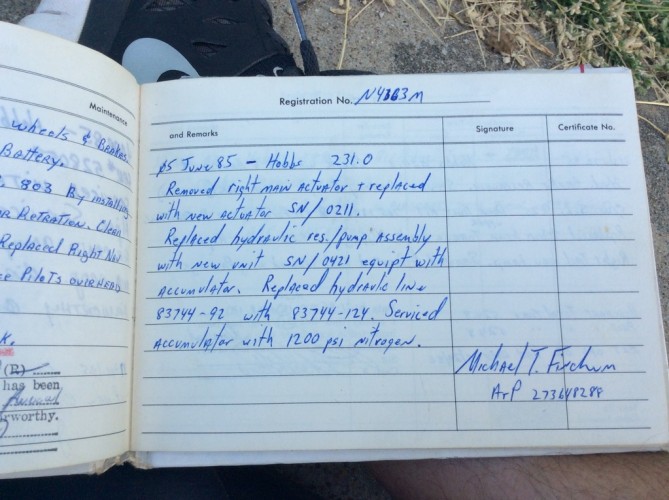 Maintenance
wheels & Brakes.
Battery.
803 By installing
Retration. Clean
Replaced Right Nav
Pilots overhead
K.
(R)
has been
rworthy.
Registration No. N4363M
and Remarks
Signature
Certificate No.
05 June 85 - Hobbs 231.0
Removed right main actuator + replaced
with new actuator SN/0211.
Replaced hydraulic res./pump Assembly
with new unit SN/0421 equipt with
accumulator. Replaced hydraulic line
83744-92 with 83744-124. Serviced
accumulator with 1200 psi nitrogen.
Michael T.
A+P 273648288